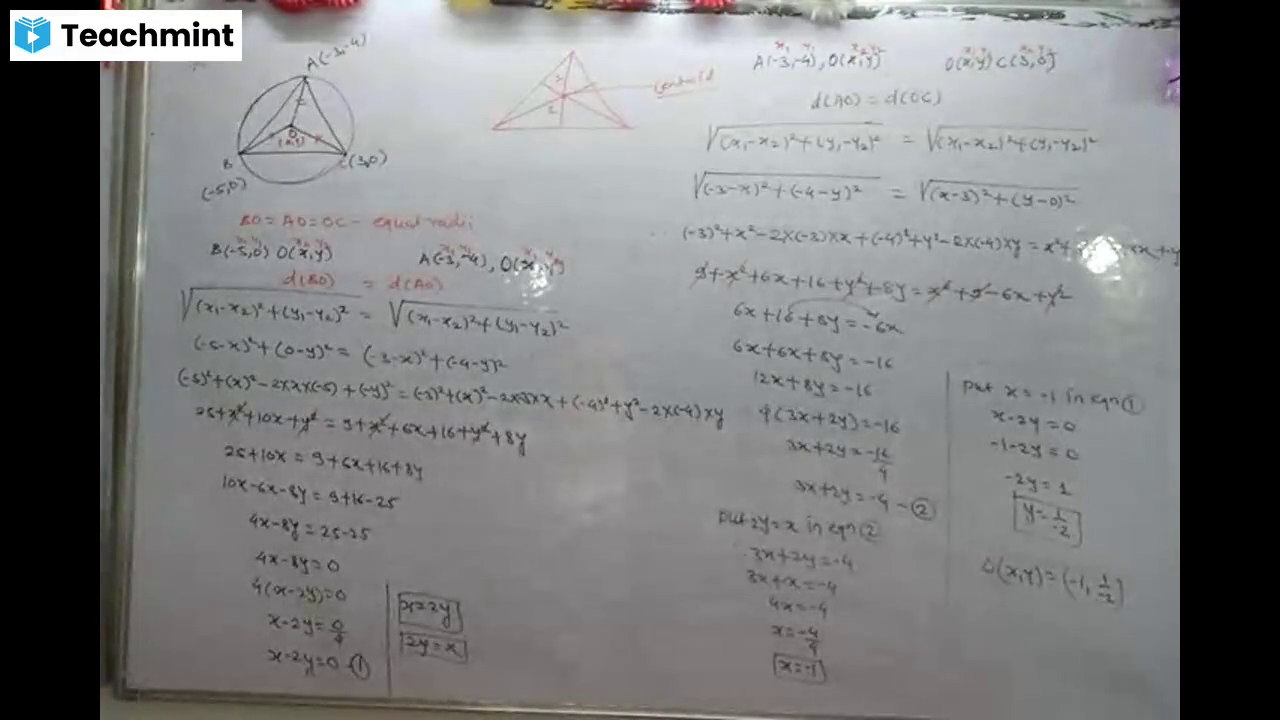 Teachmint
A(-3,-4)
O
(x,y)
B
(-5,0)
C(3,0)
2
centroid
BO = AO = OC - equal radii
x₁ y₁ x₂ y₂
B(-5,0) O(x,y)
A(-3,-4), O(x,y)
d(BO) = d(AO)
√(x₁-x₂)²+(y₁-y₂)² = √(x₁-x₂)²+(y₁-y₂)²
(-5-x)²+(0-y)² = (-3-x)²+(-4-y)²
(-5)²+(x)²-2×x×(-5)+(-y)² = (-3)²+(x)²-2×-3×x+(-4)²+y²-2×(-4)×y
25+x²+10x+y² = 9+x²+6x+16+y²+8y
25+10x = 9+6x+16+8y
10x-6x-8y = 9+16-25
4x-8y = 25-25
4x-8y=0
4(x-2y)=0
x-2y=0/4
x-2y=0 -①
x=2y
2y=x
x₁ y₁ x₂ y₂
A(-3,-4), O(x,y)
O(x,y) C(3,0)
d(AO) = d(OC)
√(x₁-x₂)²+(y₁-y₂)² = √(x₁-x₂)²+(y₁-y₂)²
√(-3-x)²+(-4-y)² = √(x-3)²+(y-0)²
(-3)²+x²-2×(-3)×x+(-4)²+y²-2×(-4)×y = x²+
9+x²+6x+16+y²+8y = x²+9-6x+y²
6x+16+8y = -6x
6x+6x+8y = -16
12x+8y = -16
4(3x+2y) = -16
3x+2y = -16/4
3x+2y = -4 -②
Put 2y=x in eqn②
3x+2y=-4
3x+x=-4
4x=-4
x=-4/4
x=-1
Put x=-1 in eqn①
x-2y=0
-1-2y=0
-2y=1
y=1/-2
O(x,y)=(-1, 1/-2)